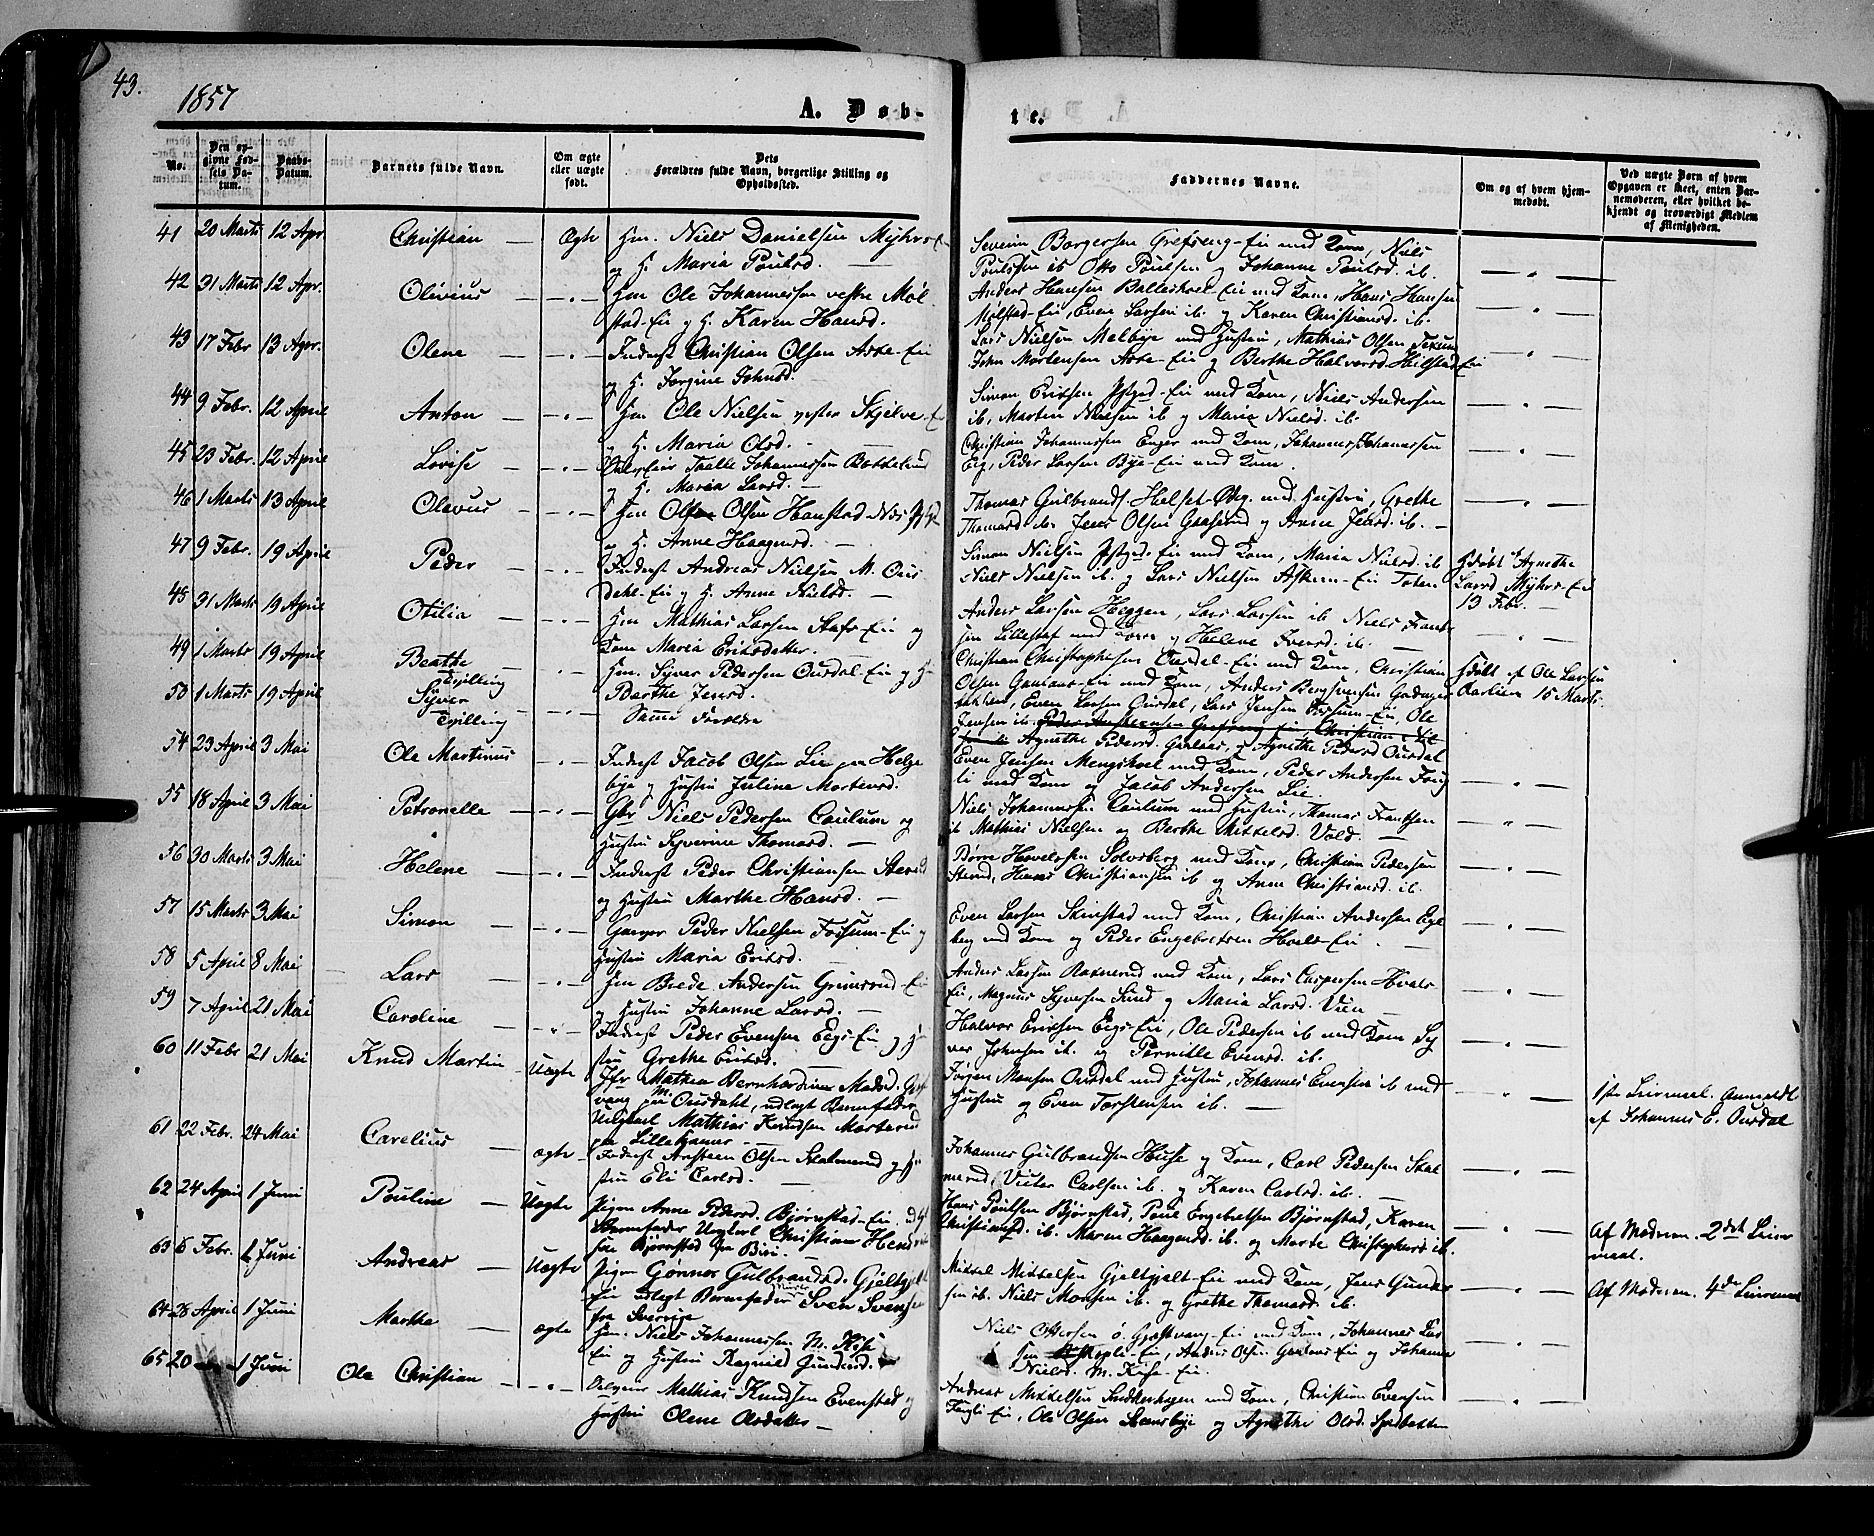 43.
1857
A. Døb-
te.
No.
Den op-
givne Fød-
sels Da-
tum.
Daabs-
Datum.
Barnets fulde Navn.
Om ægte
eller uægte
født.
Dets
Forældres fulde Navn, borgerlige Stilling og
Opholdssted.
Faddernes Navne.
Om og af hvem hjem-
medøbt.
Ved uægte Børn af hvem
Opgaven er skeet, enten Bar-
nemoderen, eller hvilket be-
kjendt og troværdigt Medlem
af Menigheden.
41 20 Marts 12 Apr. Christian — Ægte Hm. Niels Danielsen Myhrs-Ei
og H. Maria Poulsd. —
Severin Borgersen Grefseng-Ei med Kone, Niels
Poulssen ib Otto Poulsen og Johanne Poulsd. ib.
42 31 Marts 12 Apr. Olivius — " — Hm Ole Johannessen vestre Møl
stad-Ei og H. Karen Hansd.
Anders Hansen Balleskoel-Ei med Kone, Hans Hansen
Mølstad-Ei, Even Larsen ib. og Karen Christiansd. ib.
43 17 Febr 13 Apr. Olene — " — Inderst Christian Olsen Aske-Ei
og H. Jørgine Johnsd.
Lars Nielsen Melbye med Hustru, Mathias Olsen
John Mortensen Aske-Ei og Berthe Halvorsd. Hilstad Ei
44 9 Febr. 12 April Anton — " — Hm Ole Nielsen vestre Skjelve-Ei
og H. Maria Olsd. —
Simon Eriksen Pstgrd-Ei med Kone, Niels Andersen
ib, Martin Nielsen ib og Maria Nielsd. ib.
45 23 Febr. 12 April Lovise — " — Johannessen Bakkelund
og H. Maria Larsd. —
Christian Johannessen Enger med Kone, Johannes Johannessen
Eeg, Peder Larsen Bye-Ei med Kone.
46 1 Marts 13 April Olevus — " — Hm Olsen Hanstad Næs
og H. Anne Haagensd. —
Thomas Gulbrands. Helset med Hustru, Grethe
Thomasd. do. Jens Olsen Gaasund og Anne Jensd. ib. —
47 9 Febr. 19 April Peder — " — Inderst Andreas Nielsen M. Ous
dahl-Ei og H. Anne Nielsd. —
Simon Nielsen Pstgrd-Ei med Kone, Maria Nielsd. ib
Niels Nielsen ib. og Lars Nielsen Askem-Ei Toten
Hdøbt af Agnethe
Larsd Myhrs-Ei
13 Febr. —
48 31 Marts 19 April Otilia — " — Hm Mathias Larsen Stafs-Ei og
Kone Maria Eriksdatter.
Anders Larsen Heggen, Lars Larsen ib Niels Frants
sen Lillestaf med Kone og Helene Iversd. ib. —
49 1 Marts 19 April Beathe — " — Hm. Syver Pedersen Ousdal-Ei og H.
Tvilling
Berthe Jensd. —
Christian Christophersen Ousdal-Ei med Kone, Christian
Olsen med Kone, Anders Bergsvensen
Hdøbt af Ole Larsen
15 Marts.
50 1 Marts 19 April Syver — " — Samme Forældre
Tvilling
Even Larsen Ousdal, Lars Jensen Fossum-Ei, Ole
Jensen ib.
Agnethe Pedersd. Gaalaas, og Agnethe Pedersd Ousdal
54 23 April 3 Mai Ole Martinus — " — Inderst Jacob Olsen Lie paa Helge
bye og Hustru Juline Mortensd.
Even Jensen Mengskoel med Kone, Peder Andersen Faug
li med Kone og Jacob Andersen Lie.
55 18 April 3 Mai Petronelle — " — Gbr Niels Pedersen Caulum og
Hustru Syverine Thomasd. —
Niels Johannessen Caulum med Hustru, Thomas Frantsen
ib Mathias Nielsen og Berthe Mikkelsd. Vold. —
56 30 Marts 3 Mai Helene — " — Inderst Peder Christiansen Stensrud
og Hustru Marthe Hansd. —
Børre Hovelssen Solvsberg med Kone, Christian Pedersen
Stensrud, Hans Christiansen ib og Anne Christiansd. ib.
57 15 Marts 3 Mai Simon — " — Garver Peder Nielsen Fossum-Ei og
Hustru Maria Eriksd. —
Even Larsen Skinstad med Kone, Christian Andersen Egge
berg med Kone og Peder Engebretsen Hvals-Ei. —
58 5 April 8 Mai Lars — " — Hm Brede Andersen Grimsrud-Ei
og Hustru Johanne Larsd. —
Anders Larsen Ratnerud med Kone, Lars Caspersen Hvals-
Ei, Magnus Syversen Sund og Maria Larsd. Vien —
59 7 April 21 Mai Caroline — " — Inderst Peder Evensen Eegs-Ei og Hu
stru Grethe Eriksd.
Halvor Eriksen Eegs-Ei, Ole Pedersen ib med Kone Sy
ver Johnsen ib. og Pernille Evensd. ib.
60 11 Febr 21 Mai Knud Martin — Uægte Jfr Mathea Bernhardine Madsd. Gjest
vang paa M. Ousdahl, udlagt Barnefader
Ungkarl Mathias Knudsen Morterud
paa Lillehammer —
Jørgen Monsen Ousdal med Hustru, Johannes Evensen ib med
Hustru og Even Torstensen ib. —
1ste Leiermaal. Anmeldt
af Johannes E. Ousdal
61 22 Febr. 24 Mai Carelius — ægte Inderst Ansteen Olsen Stalsmerud og Hu
stru Eli Carlsd. —
Johannes Gulbrandsen Huse og Kone, Carl Pedersen Stal
merud, Victor Carlsen ib. og Karen Carlsd. ib. —
62 24 April 1 Juni Pouline — Uægte Pigen Anne Pedersd. Bjørnstad-Ei, udlgt
Barnefader Ungkarl Christian Hendrik
sen Bjørnstad fra Biri. —
Hans Poulsen Bjørnstad, Poul Engebretsen Bjørnstad, Karen
Christiansd. ib. Maren Haagensd. ib. og Marte Christophersd. ib.
Af Moderen. 2det Leier
maal.
63 6 Febr. 1 Juni Andreas — Uægte Pigen Gjønnor Gulbrandsd. Gjeltgjelt
Ei udlagt Barnefader Sven Svensen
fra Sverrige
Mikkel Mikkelsen Gjeltgjelt-Ei med Kone, Jens Gunder
sen ib. Niels Monsen ib. og Grethe Thomasd. ib.
Af Moderen. 4de Leiermaal
64 28 April 1 Juni Marthe — ægte Hm. Niels Johannessen M. Kise
Ei og Hustru Ragnild Gundersd.
Niels Ottersen ø. Gjestvang-Ei med Kone, Johannes Lar
sen Ei, Anders Olsen Ei og Johanne
Nielsd. M. Kise-Ei.
65 20 — 1 Juni Ole Christian — " — Selveier Mathias Knudsen Evenstad og
Hustru Olene Olsdatter —
Andreas Mikkelsen Sukkestagen med Kone, Christian Evensen
Faugli-Ei, Ole Olsen Stensbye og Agnethe Olsd. Spidbakken